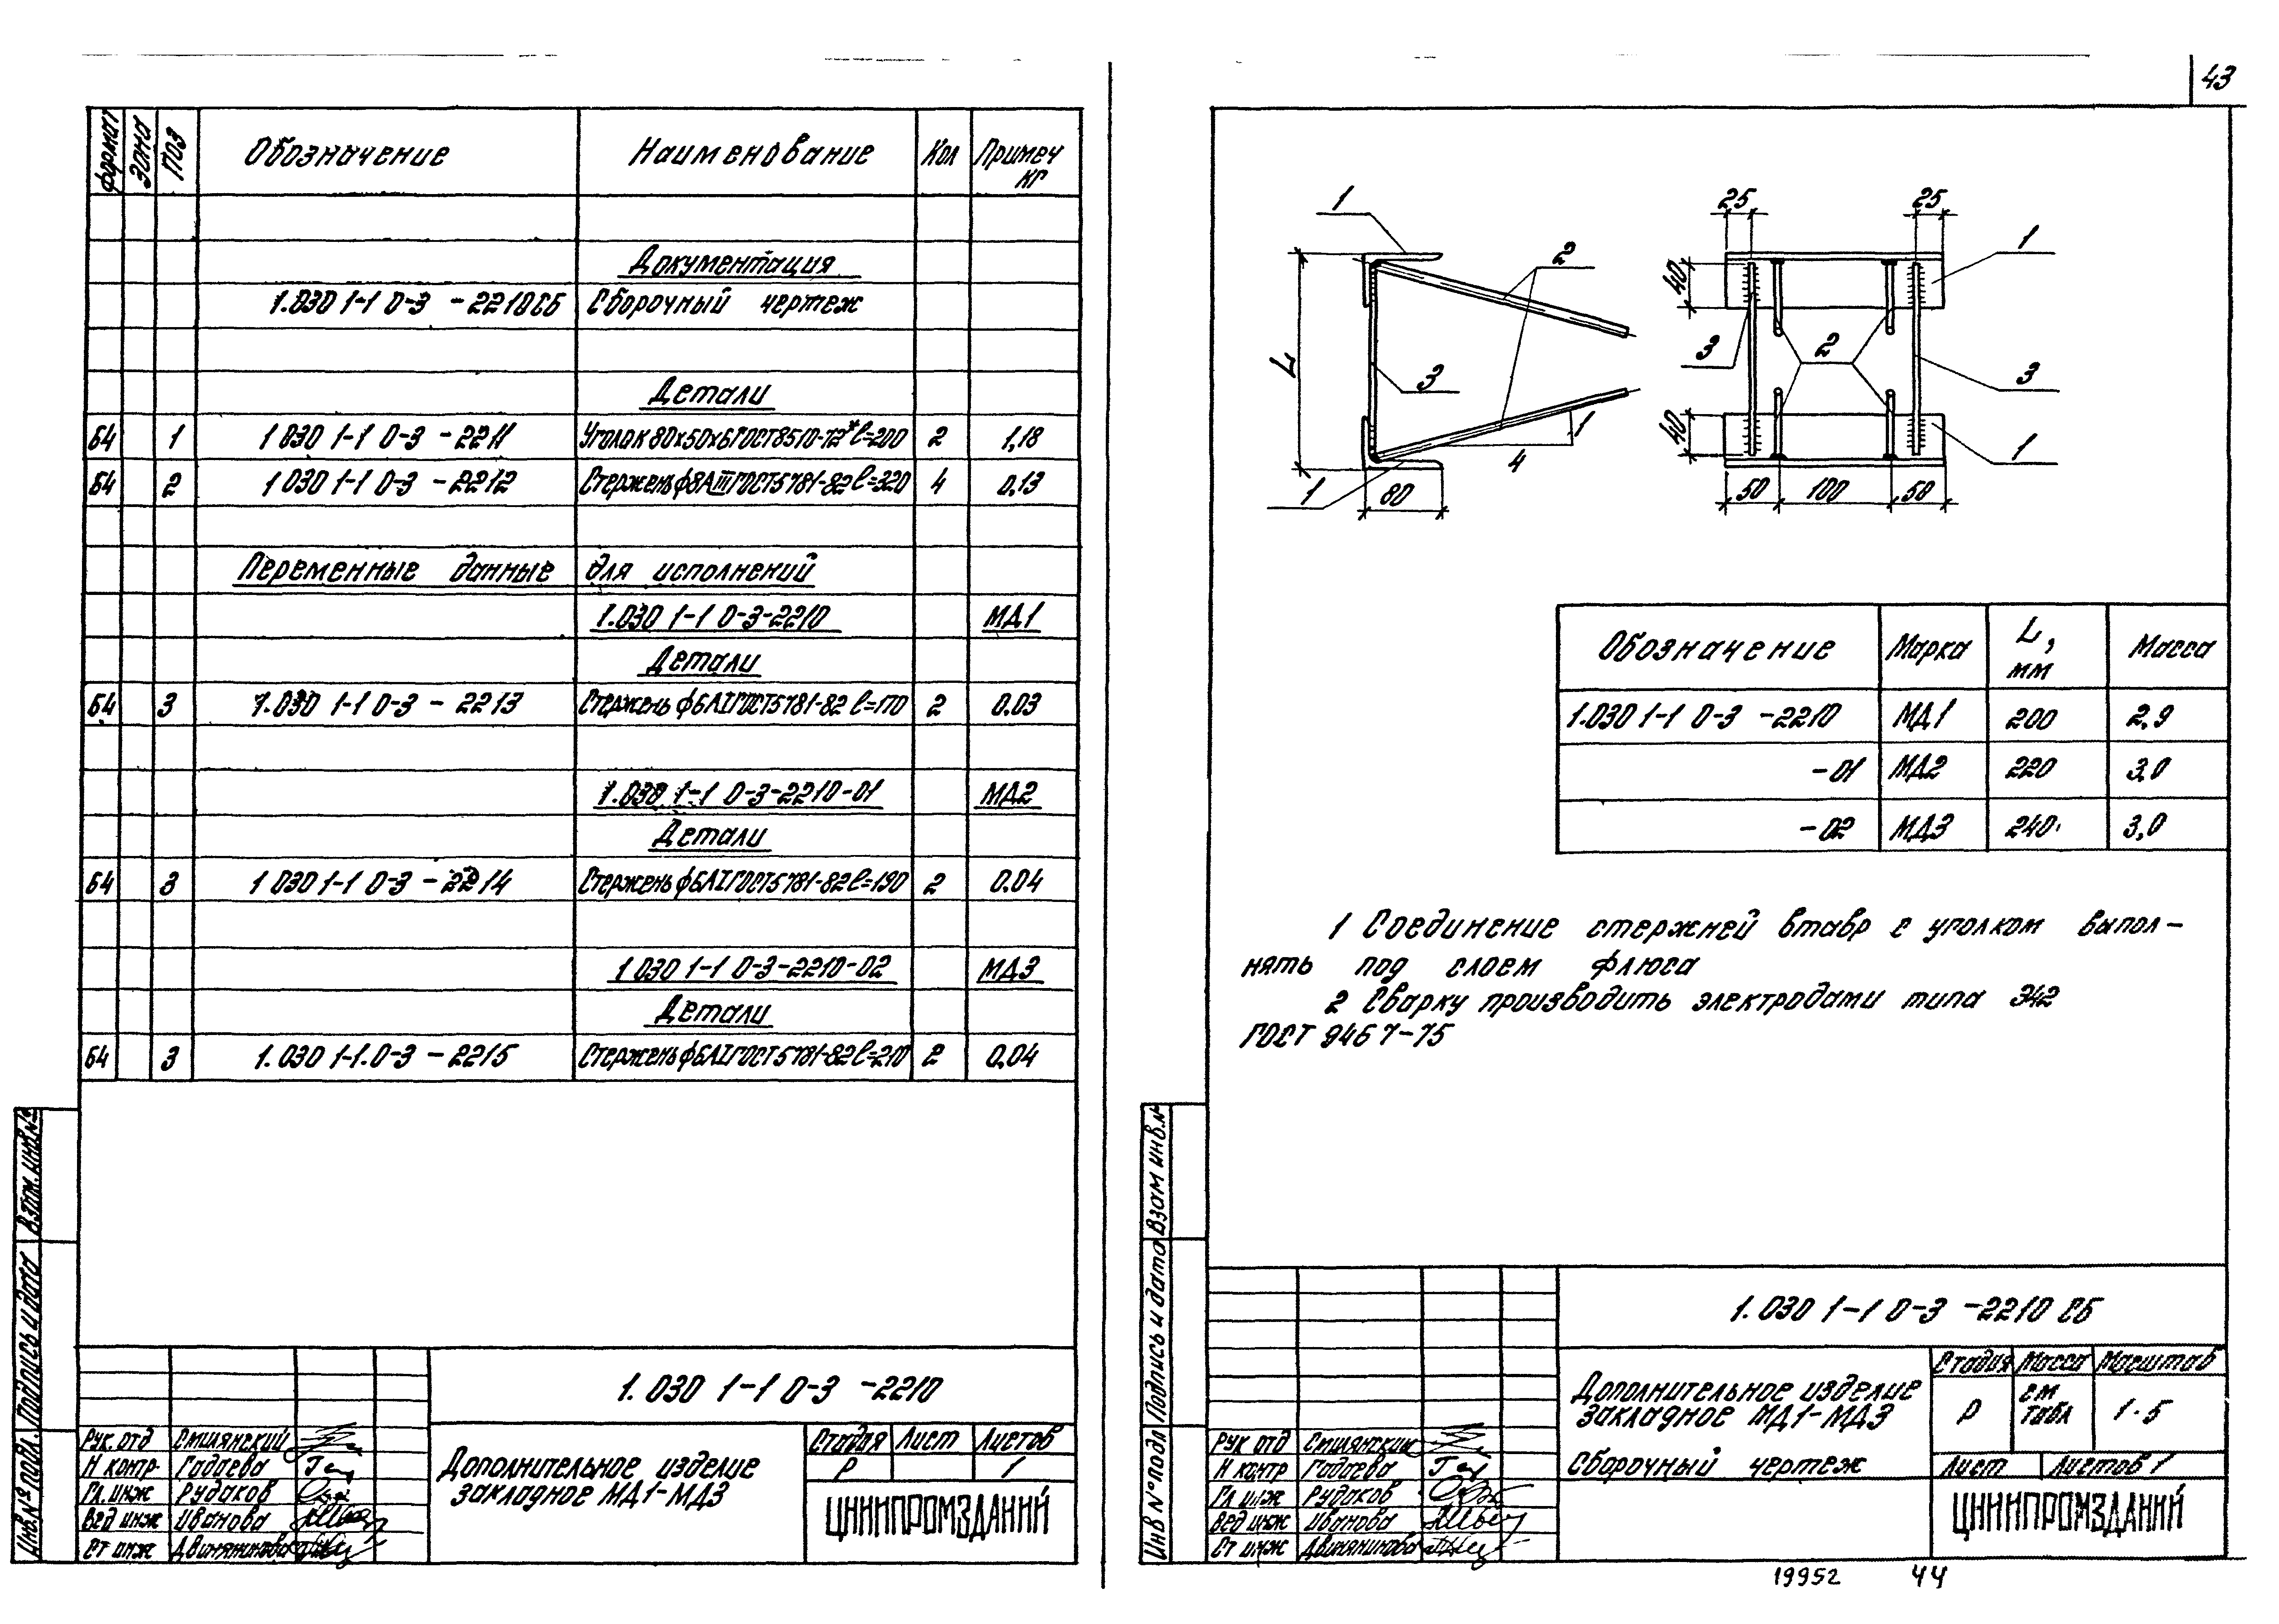 43
формат Зона Поз Обозначение Наименование Кол Примеч кг
Документация
1.030 1-1 0-3 -2210СБ Сборочный чертеж
Детали
Б4 1 1 030 1-1 0-3 -2211 Уголок 80х50х6 ГОСТ 8510-72* ℓ=200 2 1,18
Б4 2 1 030 1-1 0-3 -2212 Стержень ф8АIII ГОСТ 5781-82 ℓ=320 4 0,13
Переменные данные для исполнений
1.030 1-1 0-3-2210 МД1
Детали
Б4 3 1.030 1-1 0-3 - 2213 Стержень ф6АI ГОСТ 5781-82 ℓ=170 2 0.03
1.030 1-1 0-3-2210-01 МД2
Детали
Б4 3 1 030 1-1 0-3 - 2214 Стержень ф6АI ГОСТ 5781-82 ℓ=190 2 0.04
1 030 1-1 0-3-2210-02 МД3
Детали
Б4 3 1. 030 1-1. 0-3 - 2215 Стержень ф6АI ГОСТ 5781-82 ℓ=210 2 0,04
Взам. инв.№
Подпись и дата
Инв.№ подл.
1. 030 1-1 0-3 -2210
Рук. отд Смилянский
Н контр Гадаева
Гл. инж Рудаков
Вед инж Иванова
Ст инж
Дополнительное изделие
закладное МД1-МД3
Стадия Лист Листов
Р 1
ЦНИИПРОМЗДАНИЙ
1 2 3 L 4 1 1 80
25 25 40 40 1 3 2 3 1 50 100 50
Обозначение Марка L, мм Масса
1.030 1-1 0-3 -2210 МД1 200 2,9
-01 МД2 220 3,0
-02 МД3 240 3,0
1 Соединение стержней втавр с уголком выпол-
нять под слоем флюса
2 Сварку производить электродами типа Э42
ГОСТ 9467-75
Взам инв.№
Подпись и дата
Инв № подл
1. 030 1-1 0-3 -2210 СБ
Рук отд Смилянский
Н контр Гадаева
Гл инж Рудаков
Вед инж Иванова
Ст инж
Дополнительное изделие
закладное МД1-МД3
Сборочный чертеж
Стадия Масса Масштаб
Р см табл 1·5
Лист Листов 1
ЦНИИПРОМЗДАНИЙ
19952 44